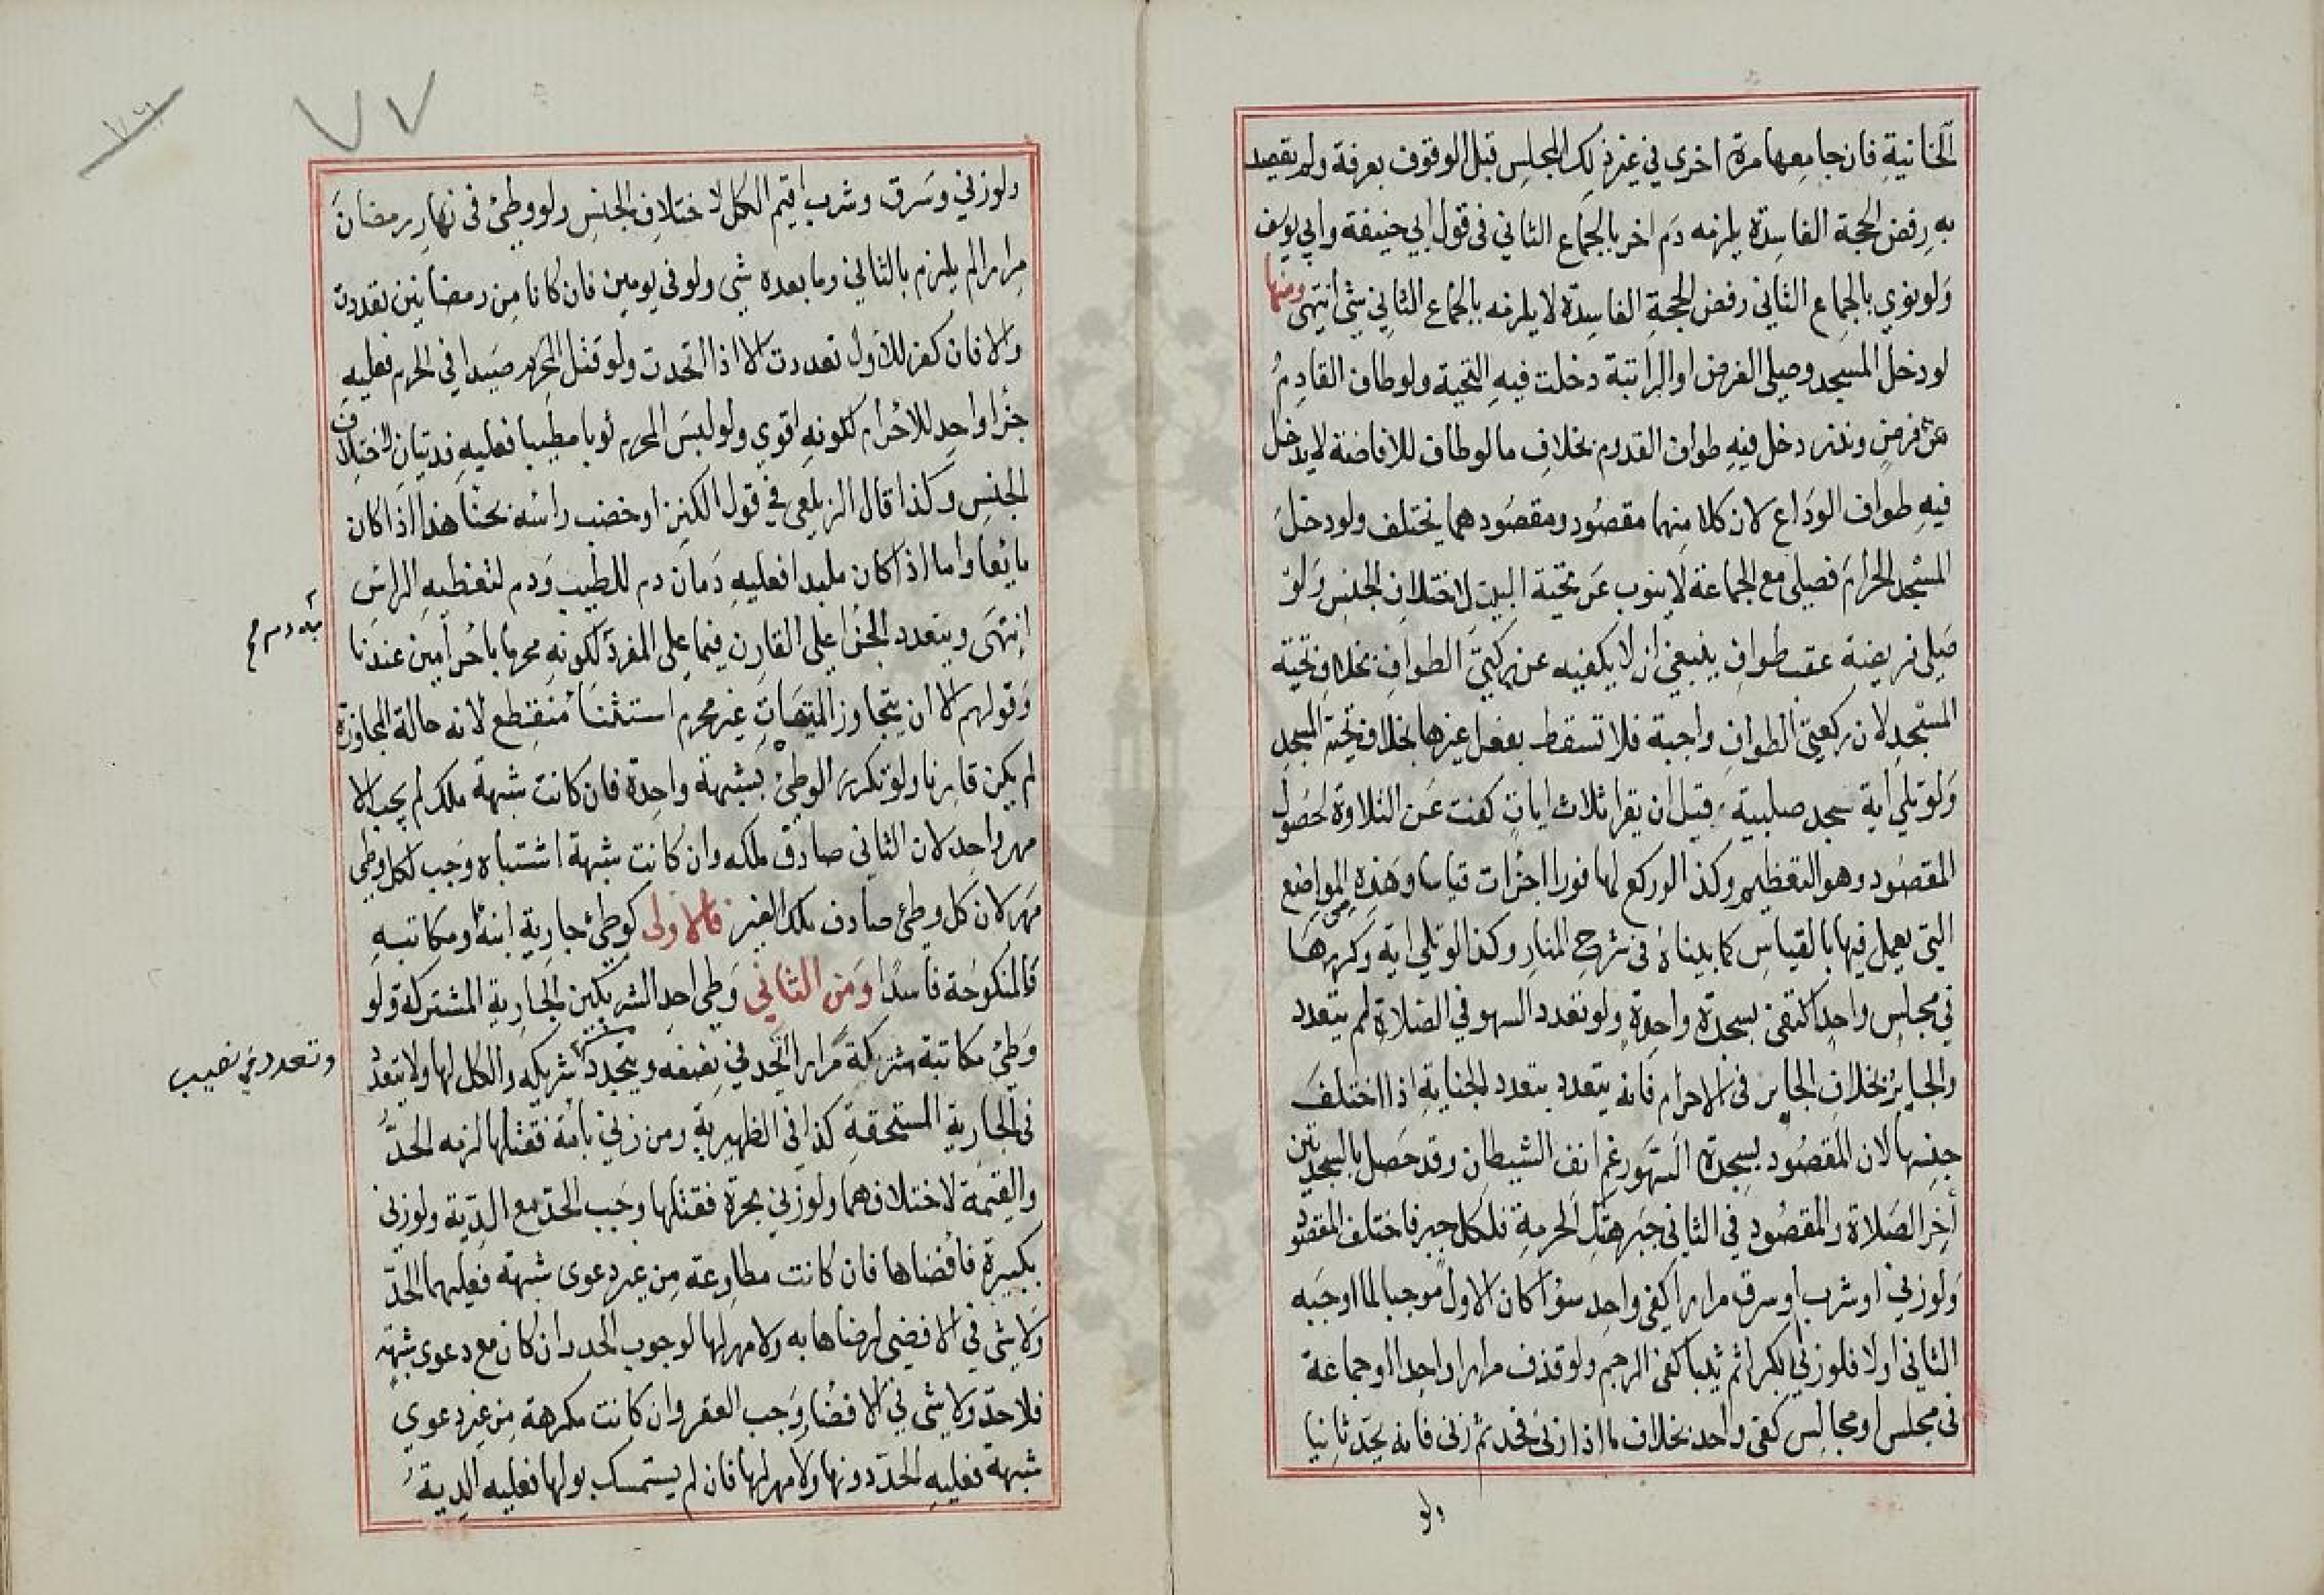 الخانية فان جامعها مرة اخري في غير ذلك المجلس قبل الوقوف بعرفة ولم يقصد
به رفض الحجة الفاسدة يلزمه دم اخر بالجماع الثاني في قول ابي حنيفة وابي يوسف
ولو نوي بالجماع الثاني رفض الحجة الفاسدة لا يلزمه بالجماع الثاني شئ انتهى ومنها
لو دخل المسجد وصلي الفرض او الراتبة دخلت فيه التحية ولو طاف القادم
عن فرض ونذر دخل فيه طواف القدوم بخلاف ما لو طاف للافاضة لا يدخل
فيه طواف الوداع لان كلا منهما مقصود ومقصودهما يختلف ولو دخل
المسجد الحرام فصلى مع الجماعة لا ينوب عن تحية البيت لاختلاف الجنس ولو
صلي فريضة عقب طواف ينبغي ان لا يكفيه عن ركعتي الطواف بخلاف تحية
المسجد لان ركعتي الطواف واجبة فلا تسقط بفعل غيرها بخلاف تحية المسجد
ولو تلي اية سجد صلبية قبل ان يقرا ثلاث ايات كفت عن التلاوة لحصول
المقصود وهو التعظيم وكذا لو ركع لها فورا اجزات قياسا وهذه من المواضع
التي يعمل فيها بالقياس كما بيناه في شرح المنار وكذا لو تلي اية وكررها
في مجلس واحد اكتفى بسجدة واحدة ولو تعدد السهو في الصلاة لم يتعدد
والجابر بخلاف الجابر في الاحرام فانه يتعدد بتعدد الجناية اذا اختلف
جنسها لان المقصود بسجدة السهو رغم انف الشيطان وقد حصل بالسجدتين
أخر الصلاة والمقصود في الثاني جبر هتك الحرمة فلكل جبر فاختلف المقصود
ولو زني او شرب او سرق مرارا كفي واحد سوا كان الاول موجبا لما اوجبه
الثاني اولا فلو زني بكرا ثم ثيبا كفي الرجم ولو قذف مرارا واحدا او جماعة
في مجلس او مجالس كفى واحد بخلاف ما اذا زنى فحد ثم زنى فانه يحد ثانيا
ولو
٧٧
ولو زني وسرق وشرب اقيم الكل لاختلاف الجنس ولو وطئ في نهار رمضان
مرارا لم يلزم بالثاني وما بعده شئ ولو في يومين فان كانا من رمضانين تعددت
والا فان كفر للاول تعددت الا اذا اتحدت ولو قتل المحرم صيدا في الحرم فعليه
جزا واحد للاحرام لكونه اقوي ولو لبس المحرم ثوبا مطيبا فعليه فديتان لاختلاف
الجنس وكذا قال الزيلعي في قول الكنز او خضب راسه بحنا هذا اذا كان
مايعا واما اذا كان ملبدا فعليه دمان دم للطيب ودم لتغطيه الراس
انتهى ويتعدد الجزا علي القارن فيما علي المفرد لكونه محرما باحرامين عندنا
وقولهم الا ان يتجاوز الميقات غير محرم استثنا منقطع لانه حالة المجاوزة
لم يكن قارنا ولو تكرر الوطئ بشبهة واحدة فان كانت شبهة ملك لم يجب الا
مهر واحد لان الثاني صادف ملكه وان كانت شبهة اشتباه وجب لكل وطي
مهر لان كل وطئ صادف ملك الغير فالاولى كوطئ جارية ابنه او مكاتبه
فالمنكوحة فاسدا ومن الثاني وطي احد الشريكين الجارية المشتركة ولو
وطئ مكاتبة مشتركة مرارا اتحد في نصفه ويتجدد شريكه والكل لها ولا يتعدد
وتعدد في نصيب
في الجارية المستحقة كذا في الظهيرية ومن زني بامة فقتلها لزمه الحد
والقيمة لاختلافهما ولو زني بحرة فقتلها وجب الحد مع الدية ولو زنى
بكبيرة فأفضاها فان كانت مطاوعة من غير دعوى شبهة فعليهما الحد
ولا شئ في الافضى لرضاها به ولا مهر لها لوجوب الحد وان كان مع دعوى شبهة
فلا حد ولا شئ في الافضا وجب العقر وان كانت مكرهة من غير دعوي
شبهة فعليه الحد دونها ولا مهر لها فان لم يستمسك بولها فعليه الدية